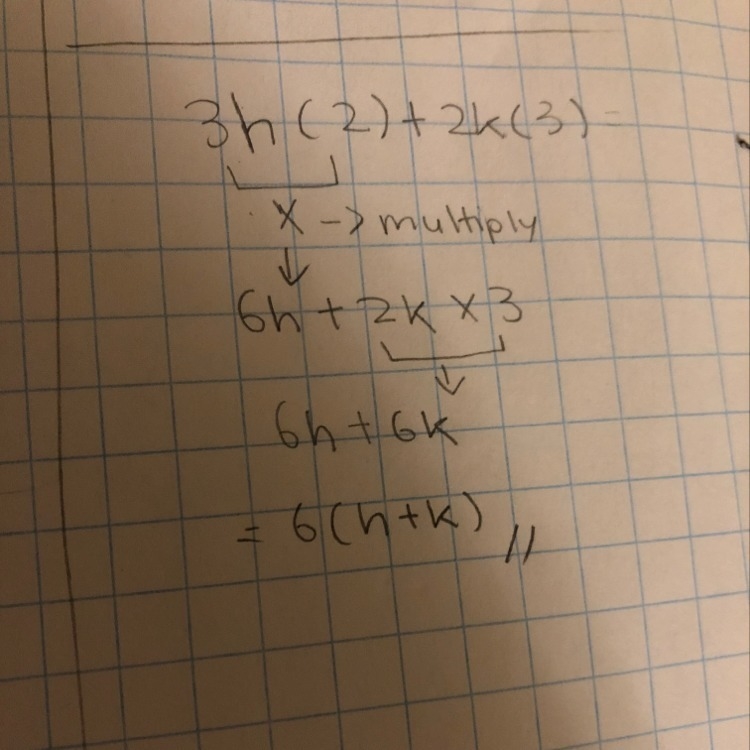 3h(2)+2k(3) =
x -> multiply
↓
6h + 2k x 3
↓
6h + 6k
= 6(h+k) //